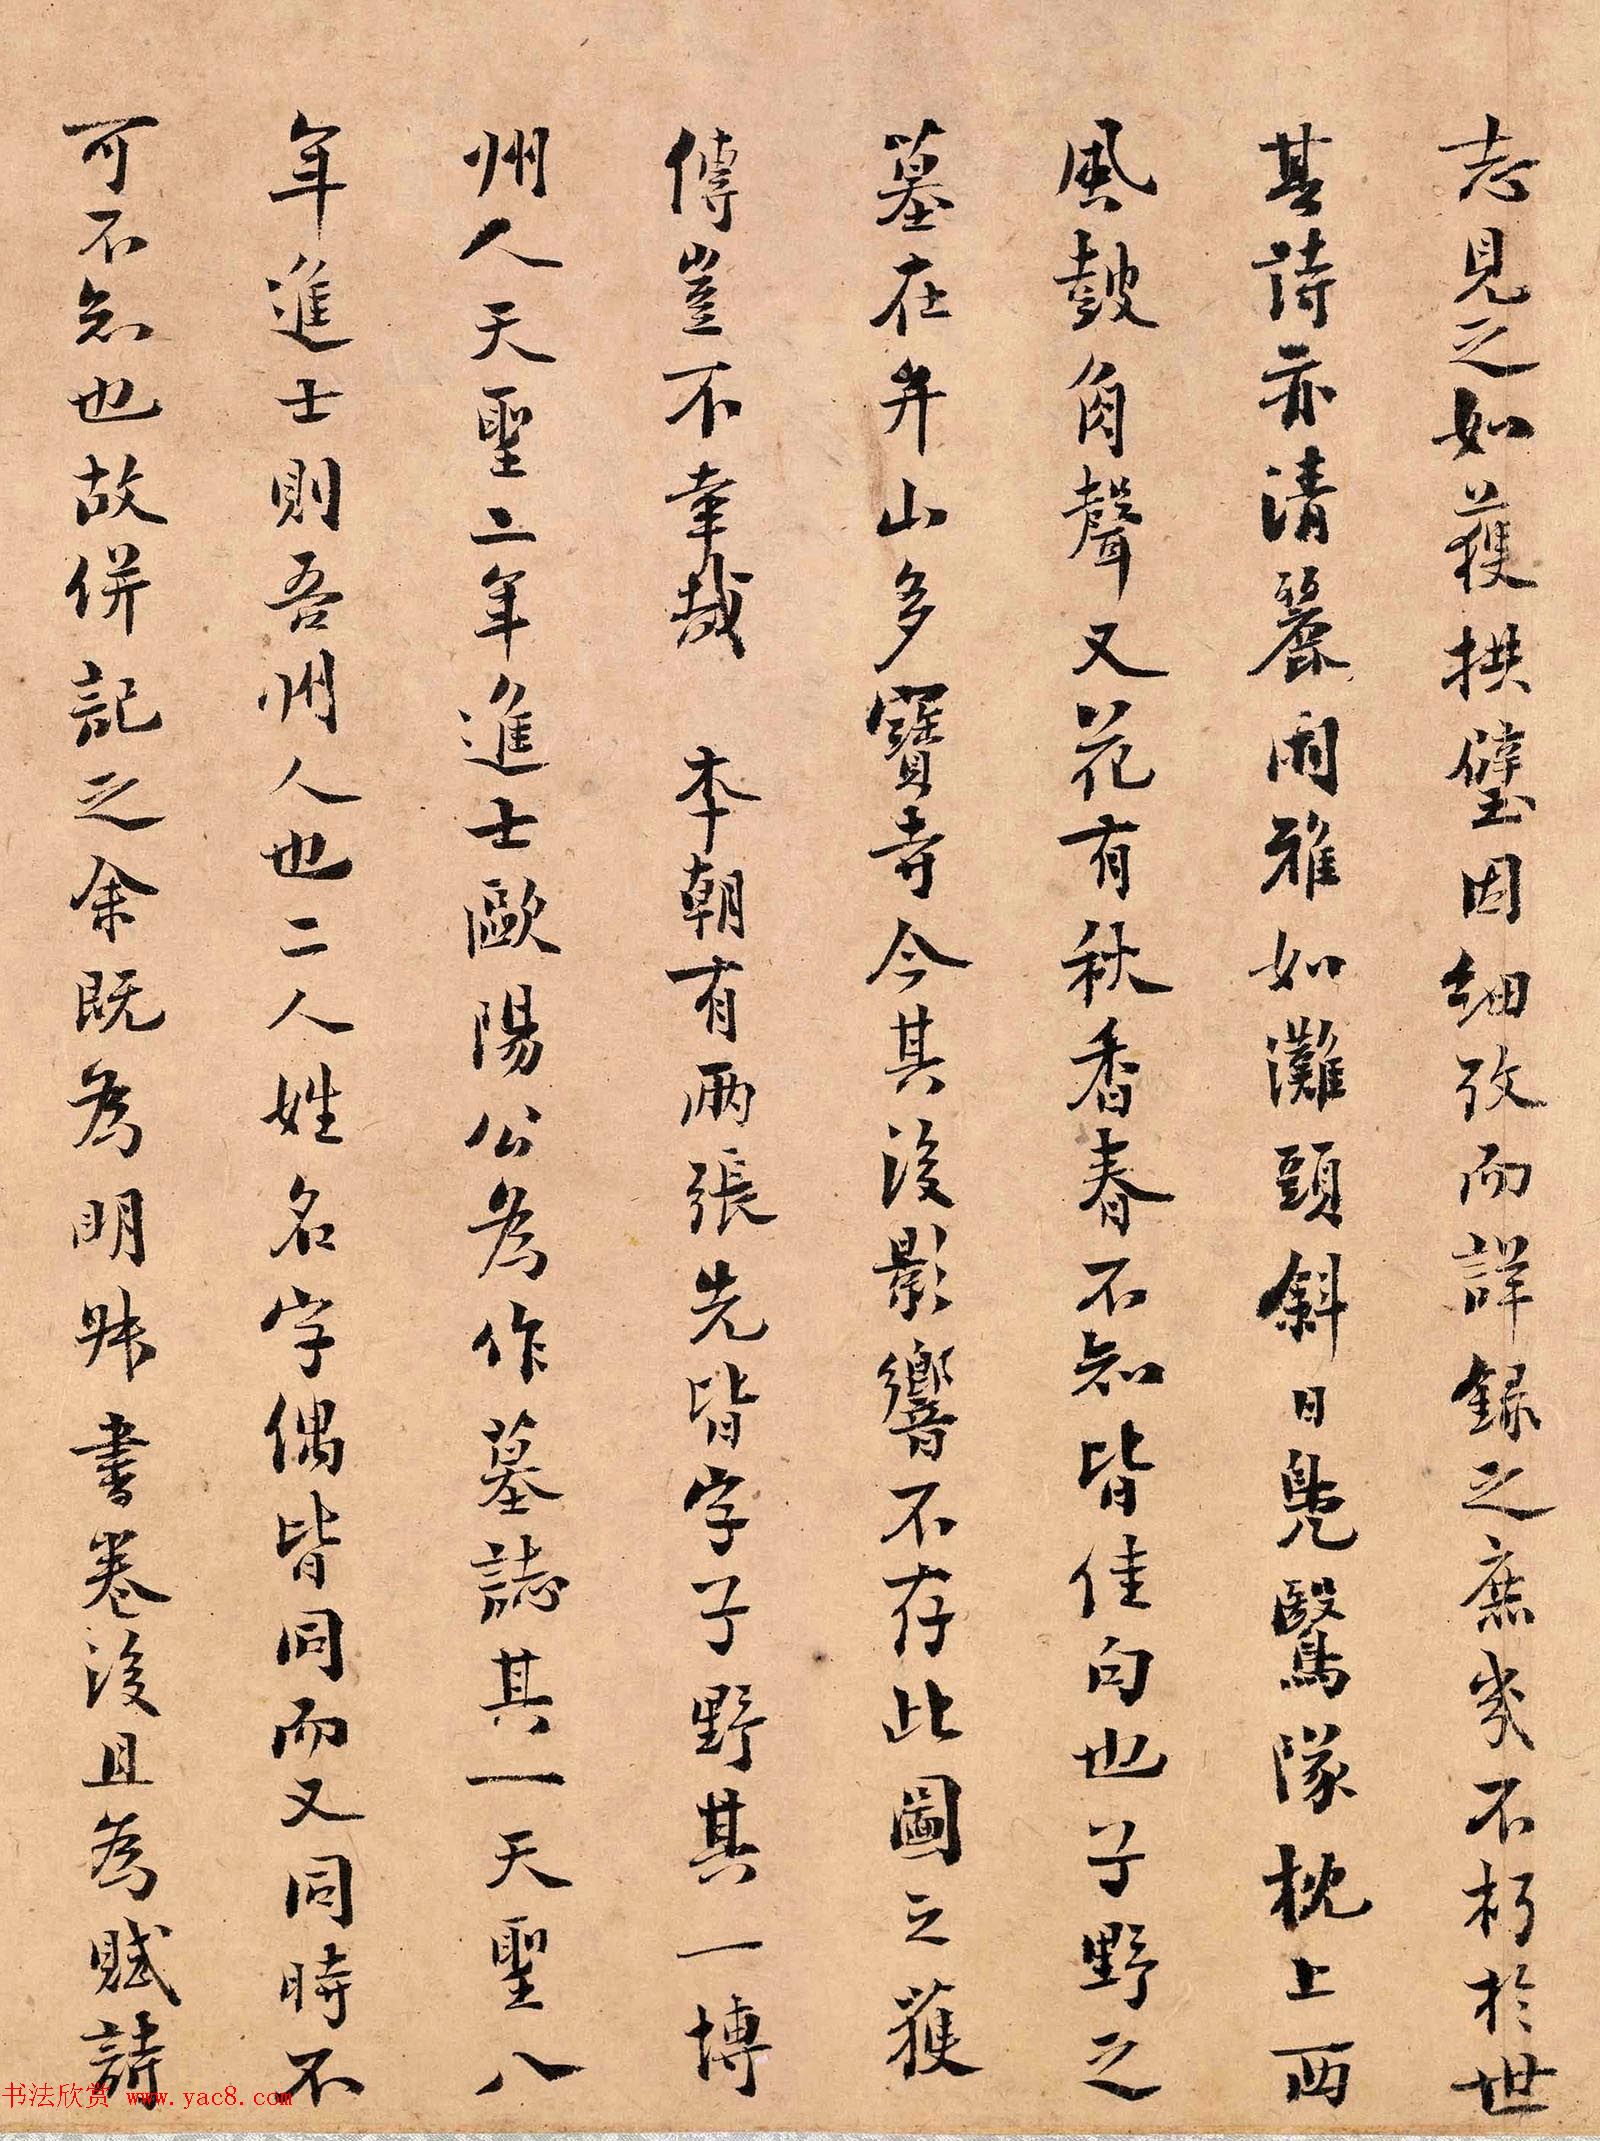 志見之如獲拱璧因細攷而詳錄之庶幾不朽於世
其詩亦清麗閑雅如灘頭斜日鳧鷖隊枕上西
風鼓角聲又花有秋香春不知皆佳句也子野之
墓在弁山多寶寺今其後影響不存此圖之獲
傳豈不幸哉 本朝有兩張先皆字子野其一博
州人天聖二年進士歐陽公為作墓誌其一天聖八
年進士則吾州人也二人姓名字偶皆同而又同時不
可不知也故併記之余既為明叔書卷後且為賦詩
书法欣赏 www.yac8.com